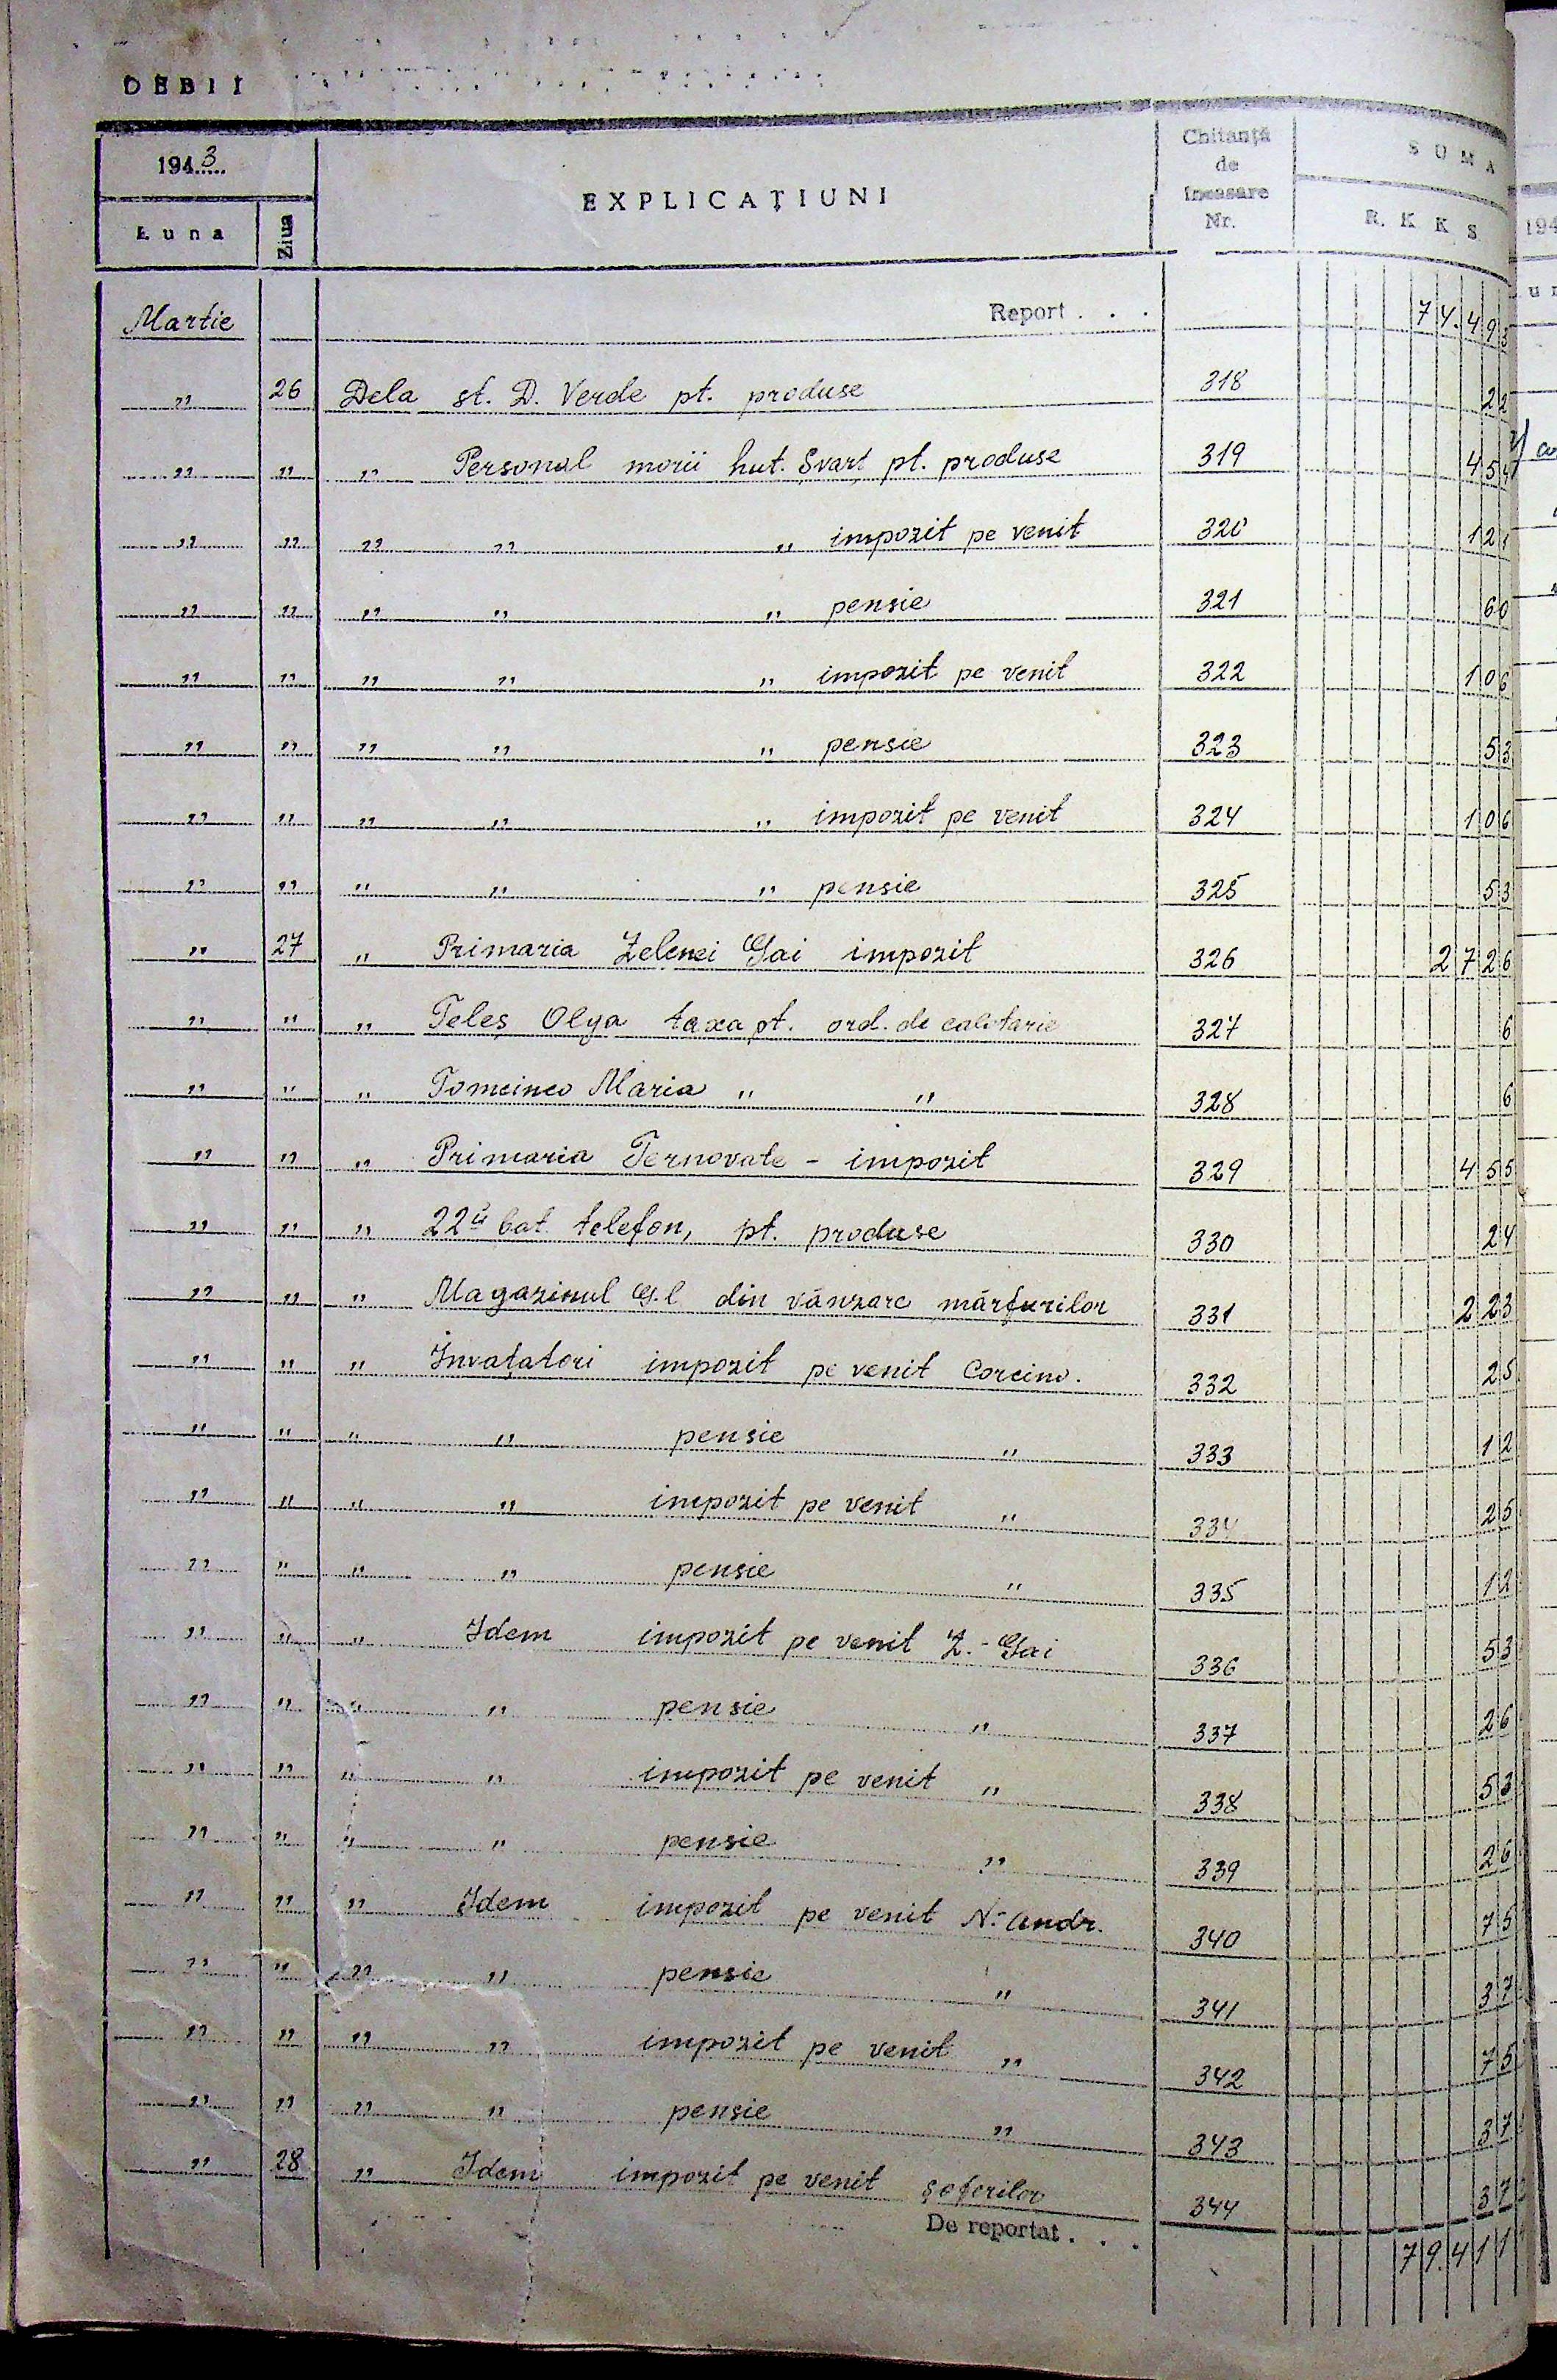 DEBIT
1943
Luna Ziua EXPLICAȚIUNI Chitanță de încasare Nr. SUMA R. K K S
Martie Report . . . 74.493
„ 26 Dela st. D. Verde pt. produse 318 22
„ „ „ Personal morii hut. Svart pt. produse 319 454
„ „ „ „ „ impozit pe venit 320 121
„ „ „ „ „ pensie 321 60
„ „ „ „ „ impozit pe venit 322 106
„ „ „ „ „ pensie 323 53
„ „ „ „ „ impozit pe venit 324 106
„ „ „ „ „ pensie 325 53
„ 27 „ Primaria Zelenei Gai impozit 326 2726
„ „ „ Teleș Olga taxa pt. ord. de calotarie 327 6
„ „ „ Tomcineo Maria „ „ 328 6
„ „ „ Primaria Ternovate - impozit 329 455
„ „ „ 22ª bat. telefon, pt. produse 330 24
„ „ „ Magazinul G.l din vânzare mărfurilor 331 223
„ „ „ Invațatori impozit pe venit Corcino. 332 25
„ „ „ „ pensie „ 333 12
„ „ „ „ impozit pe venit „ 334 25
„ „ „ „ pensie „ 335 12
„ „ „ Idem impozit pe venit Z.-Gai 336 53
„ „ „ „ pensie „ 337 26
„ „ „ „ impozit pe venit „ 338 53
„ „ „ „ pensie „ 339 26
„ „ „ Idem impozit pe venit N.-Andr. 340 75
„ „ „ „ pensie „ 341 37
„ „ „ „ impozit pe venit „ 342 75
„ „ „ „ pensie „ 343 37
„ 28 „ Idem impozit pe venit șoferilor 344 37
De reportat . . . 79.411
194